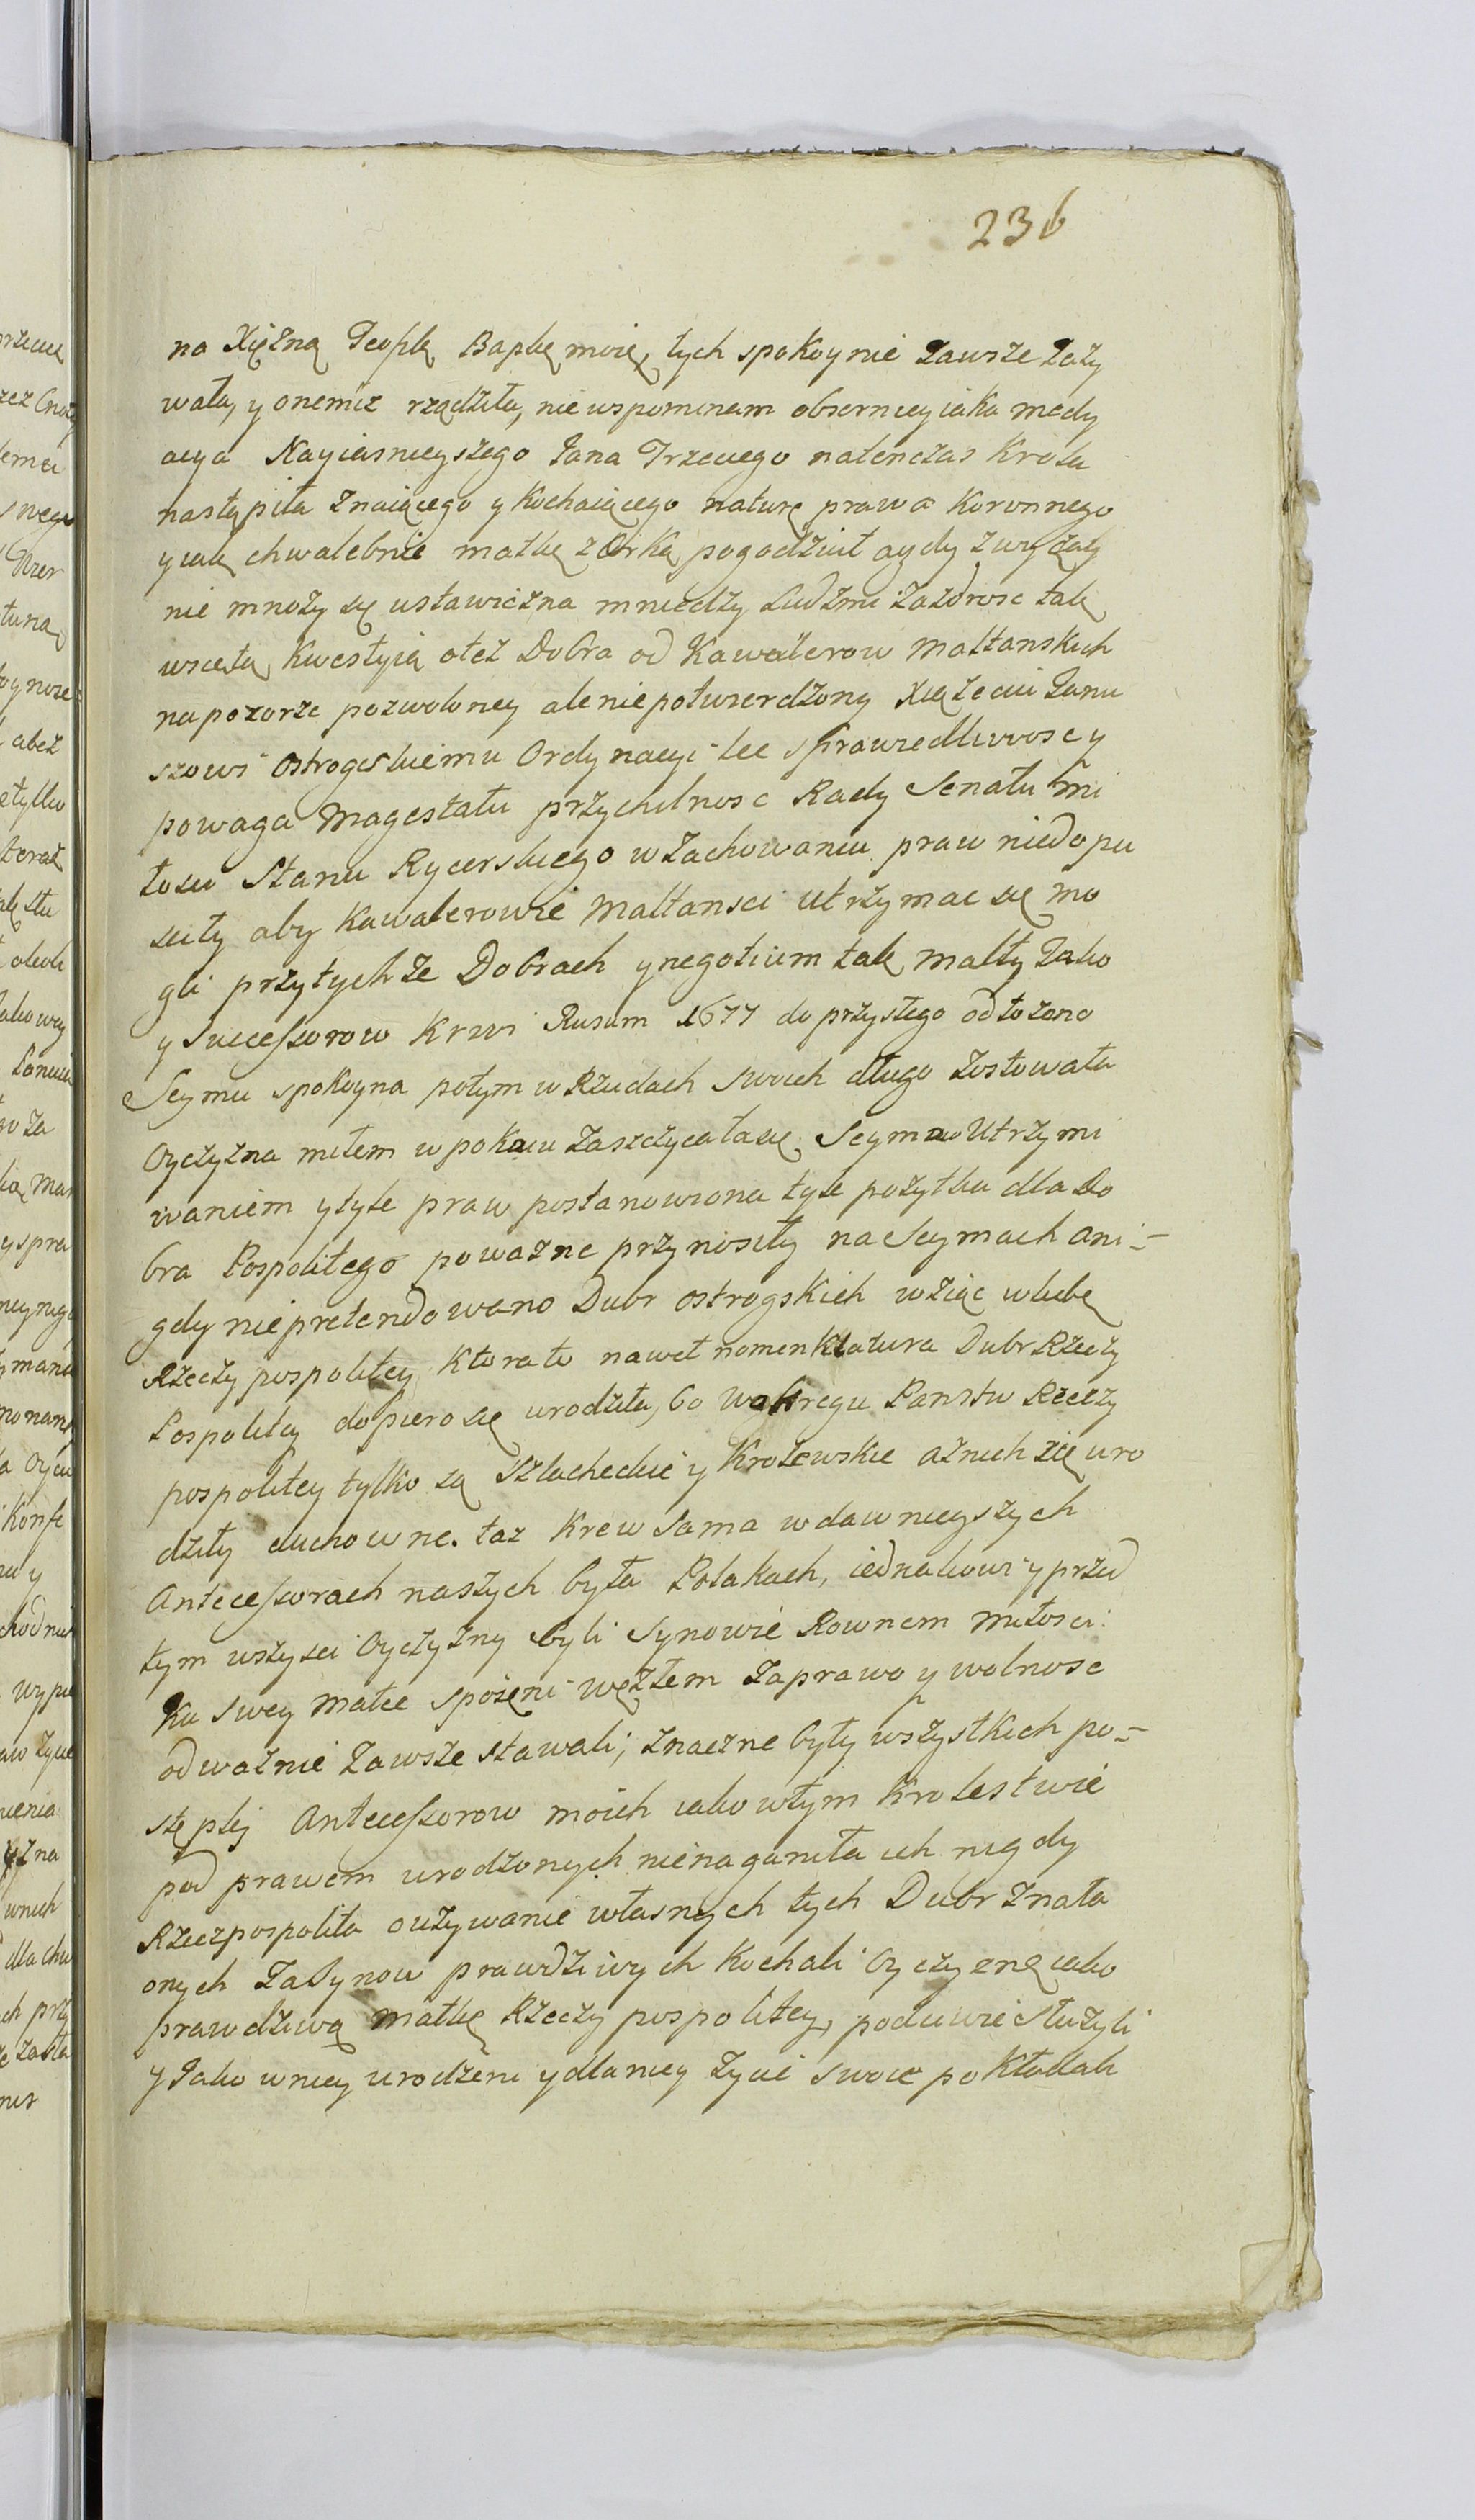 236
na Xiężną Teoplę Bapkę moię, tych spokoynie zawsze zaży
wała, y onemiz rządziła, nie wspominam obserwuy iaka medy
acya Nayiasnieyszego Jana Trzeciego natenczas Krola
nastąpiła znaiącego y kochaiącego naturę prawa koronnego
y iak chwalebnie matkę z Corką pogodził agdy zwyczay
nie mnoży się ustawiczna mniedzy Ludzmi zazdrosc tak
wzieła kwestyią otez Dobra od Kawalerow Maltanskich
napozorze pozwoloney ale niepotwierdzony Xiążeciu Janu
szowi Ostrogskiemu Ordynacyi lec sprawiedliwosc y
powaga Magestatu przychilnosc Rady Senatu mi
łosci Stanu Rycerskiego w zachowaniu praw niedopu
sciły aby Kawalerowie Maltansci utrzymac się mo
gli przytychze Dobrach ynegotium tak Malty Jako
y Successorow Krwi Rusum 1677 do przyszłego odłozono
Seymu spokoyna potym w Rządach swoich długo zostowała
Oyczyzna miłem wpokoiu zaszczycałasię Seymow Utrzymi
waniem ytyle praw postanowiona tyle pożytku dla Do
bra Pospolitego powazne przynosiły na Seymach ani-
gdy niepretendowano Dubr ostrogskich wziąc wlubę
Rzeczy pospolitey ktora to nawet nomenklatura Dubr Rzeczy
Pospolitey dopiero się urodziła, bo w okregu Panstw Rzeczy
pospolitey tylko są Szlacheckie y Krolewskie aznich się uro
dziły duchowne. taz krew sama w dawnieyszych
Antecessorach naszych była Polakach, iednakowi y przed
tym wszysci Oyczyzny byli Synowie Rownem miłosci
ku swey matce spoieni węzłem zaprawo y wolnosc
odwaznie zawsze stawali; znaczne były wszystkich po-
stępki Antecessorow moich iako wtym Krolestwie
pod prawem urodzonych nienaganiła ich nigdy
Rzeczpospolita ouzywanie własnych tych Dubr znała
onych zaSynow prawdziwych kochali Oyczyznę iako
prawdziwą matkę Rzeczy pospolitey, poduwie służyli
y Jako wniey urodzeni ydlaniey życie swoie pokładali